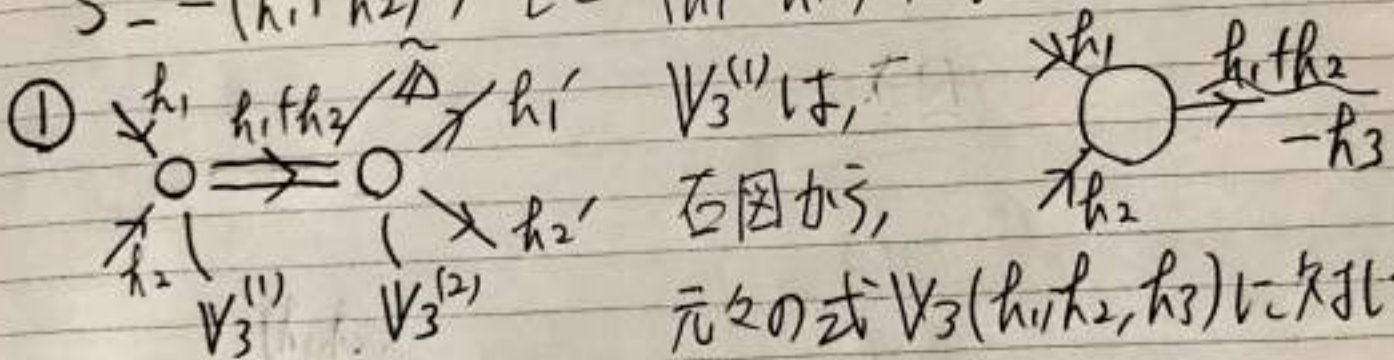 S = -(k₁+k₂)², t = -(k₁-k₁')²
① k₁ k₁+k₂ Δ̃ k₁'
k₂ k₂'
V₃⁽¹⁾ V₃⁽²⁾
V₃⁽¹⁾は,
右図から,
元々の式 V₃(k₁,k₂,k₃)に対し
k₁ k₁+k₂
-k₃
k₂